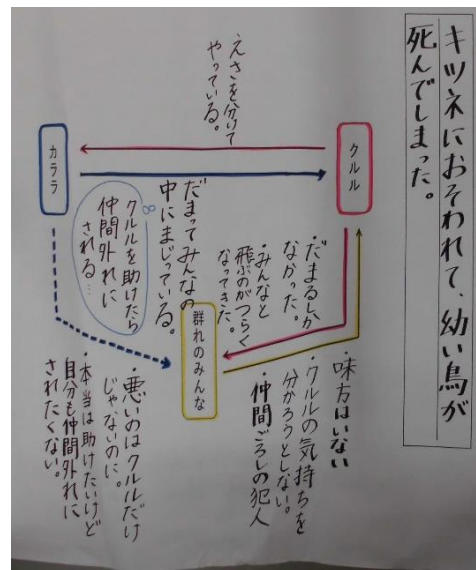 キツネにおそわれて、幼い鳥が
死んでしまった。
クルル
えさを分けて
やっている。
カララ
だまってみんなの
中にまじっている。
クルルを助けたら
仲間外れに
される…
・だまるしか
なかった。
・みんなと
飛ぶのがつらく
なってきた。
群れのみんな
・味方はいない
・クルルの気持ちを
分かろうとしない。
・仲間ごろしの犯人
・悪いのはクルルだけ
じゃないのに。
・本当は助けたいけど
自分も仲間外れに
されたくない。